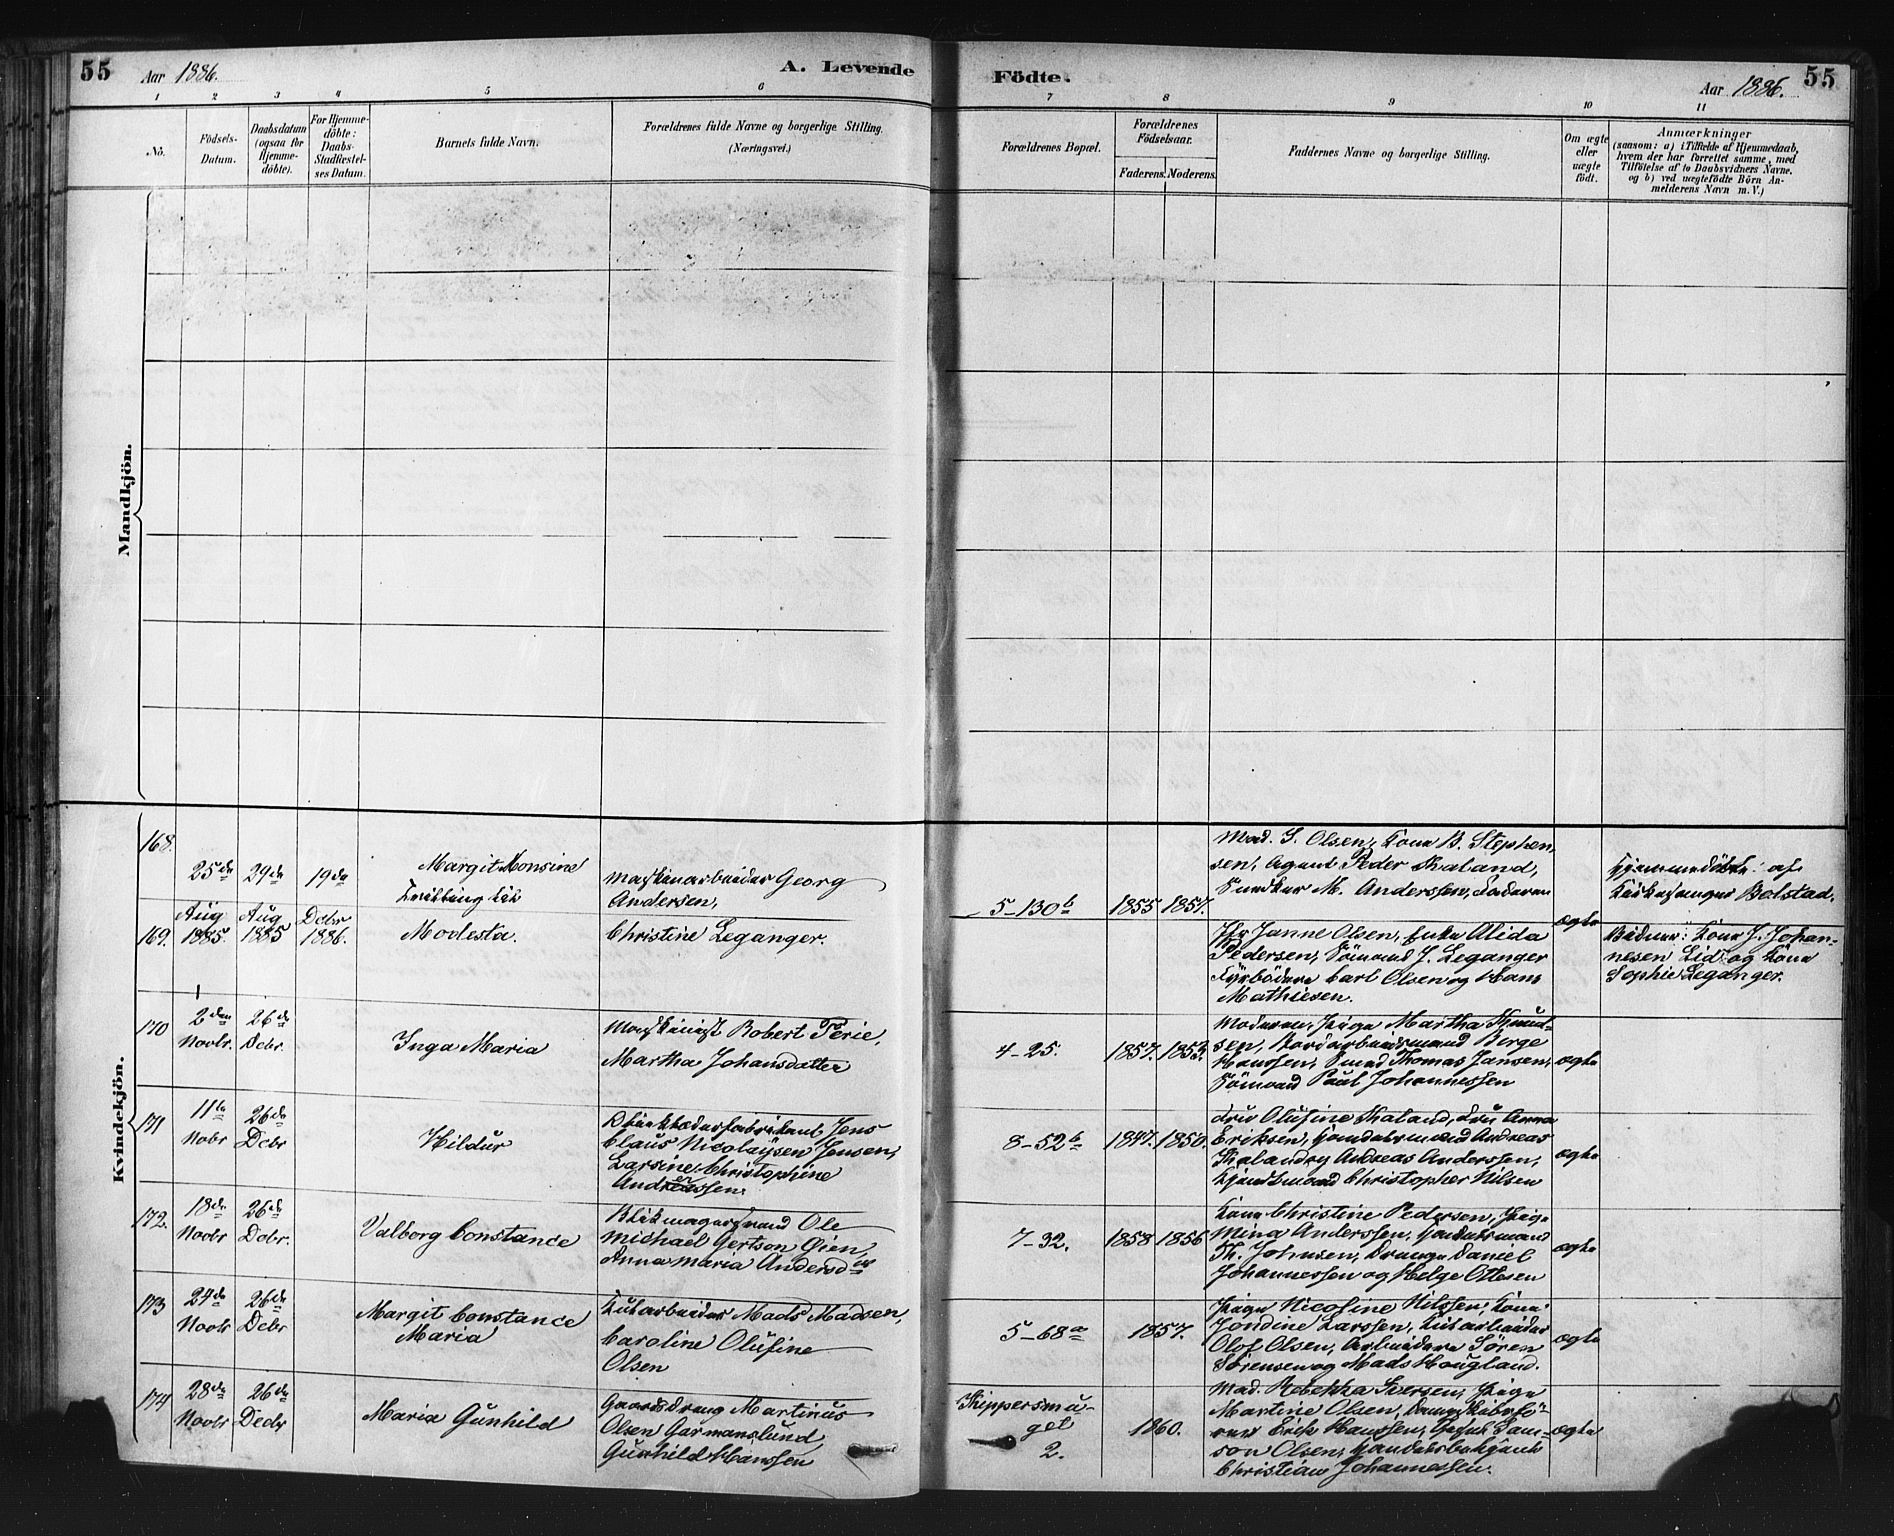 55
Aar 1886.
A. Levende
Födte.
Aar 1886.
55
1
2
3
4
5
6
7
8
9
10
11
No.
Födsels-
Datum.
Daabsdatum
(ogsaa for
Hjemme-
döbte).
For Hjemme-
döbte:
Daabs-
Stadfæstel-
ses Datum.
Barnets fulde Navn.
Forældrenes fulde Navne og borgerlige Stilling.
(Næringsvei.)
Forældrenes Bopæl.
Forældrenes
Födselsaar.
Faderens.
Moderens.
Faddernes Navne og borgerlige Stilling.
Om ægte
eller
uægte
födt.
Anmærkninger
(saasom: a) i Tilfælde af Hjemmedaab,
hvem der har forrettet samme, med
Tilföielse af to Daabsvidners Navne.
og b) ved uægtefödte Börn An-
melderens Navn m. V.)
Mandkjön.
Kvindekjön.
168.
25de
Aug
1885.
29de
Aug
1885
19de
Dcbr
1886.
Margit Monsine
Tvilling til
Maskinarbeider Georg
Andersen,
Christine Leganger.
5-130b
1855
1857.
Mad. S. Olsen, Kone B. Stephen-
sen, Agent Peder Skaland,
Snedker M. Anderssen, Faderen
ægte
Hjemmedöbte af
Kirkesanger Bolstad.
169.
Modesta.
Janne Olsen, Enke Alida
Pedersen, Sömand J. Leganger
Fyrbödere Carl Olsen og Hans
Mathiesen.
Vidner: Kone J. Johan-
nesen Lid og Kone
Sophie Leganger.
170
2den
Novbr.
26de
Dcbr.
Inga Maria
Maskinist Robert Perie,
Martha Johansdatter
4-25.
1857.
1853.
Moderen, Pige Martha Knud-
sen, Jordarbeidsmand Börge
Hanssen, Smed Thomas Jansen,
Sömand Paul Johannessen
ægte
171
11te
Nobr
26de
Dcbr
Hildur
Jens
Claus Nicolaysen Jensen,
Larsine Christophine
Andreassen
8-52b
1847.
1850.
Fru Olufine Skaland, Fru Anna
Eriksen, Handelsmænd Andreas
Skaland og Andreas Anderssen,
Christopher Nilsen
ægte
172.
18de
Novbr
26de
Dcbr.
Valborg Constance
Blikmagersvend Ole
Michael Gertson Øien,
Anna Maria Andersd
7-32.
1858
1856
Kone Christine Pedersen, Pige
Mina Anderssen, Handelsmand
Th. Johnsen, Drenge Daniel
Johannessen og Helge Ottesen
ægte
173
24de
Novbr
26de
Dcbr
Margit Constance
Maria
Mads Madsen,
Caroline Olufine
Olsen
5-68a
1857.
Pige Nicoline Nilssen, Kone
Jondine Larssen,
Olof Olsen, Arbeidere Sören
Sørensen og Mads Hougland.
ægte
174
28de
Novbr
26de
Decbr
Maria Gunhild
Gaardsdreng Martinus
Olsen Garmanslund
Gunhild Hanssen
Skippersmu-
get
2.
1860.
Mad. Rebekka Iversen, Pige
Martine Olsen,
Erik Hanssen, Sam-
son Olsen, Handelsbetjent
Christian Johannessen.
ægte